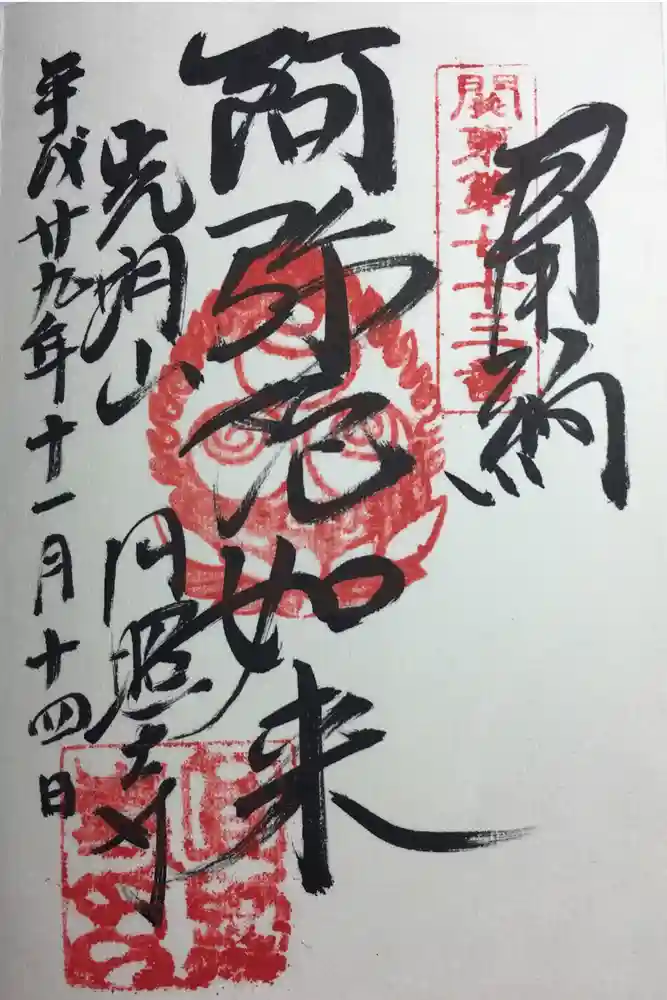 關東第七十三番
納
阿弥陀如来
光明山 円照寺
平成廿九年十一月十四日